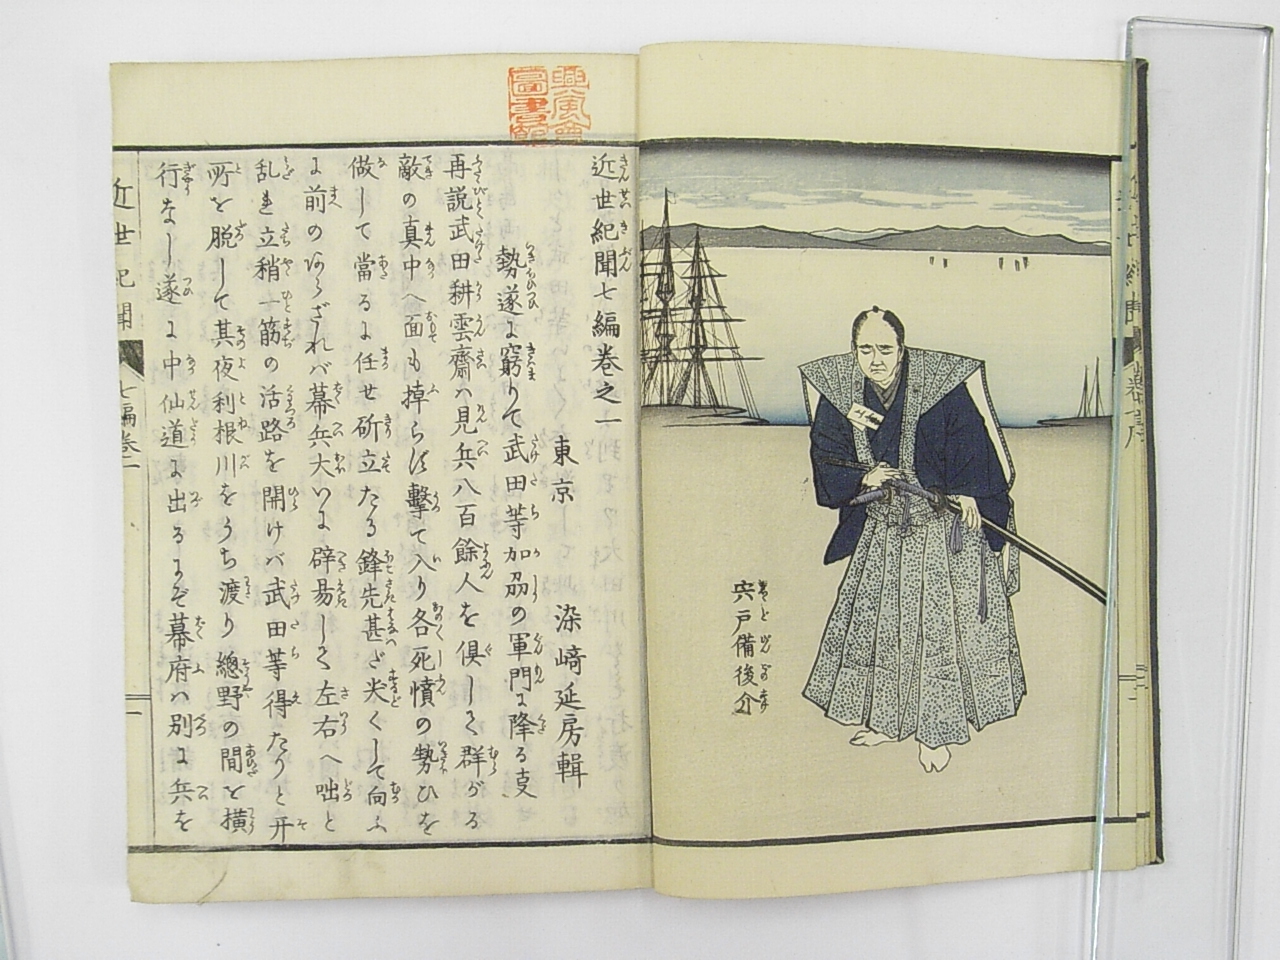 宍戸備後介
興風會
圖書館
近世紀聞七編巻之一
東京 染﨑延房輯
勢遂に窮りて武田等加刕の軍門に降る叓
再説武田耕雲齋ハ見兵八百餘人を倶して群がる
敵の真中へ面も掉らず撃て入り各死憤の勢ひを
做して當るに任せ斫立たる鋒先甚だ尖くして向ふ
に前のあらざれバ幕兵大いに辟易して左右へ咄と
乱れ立稍一筋の活路を開けバ武田等得たりと开
所を脱して其夜利根川をうち渡り總野の間を横
行なし遂に中仙道に出るにぞ幕府ハ別に兵を
近世紀聞 七編巻一